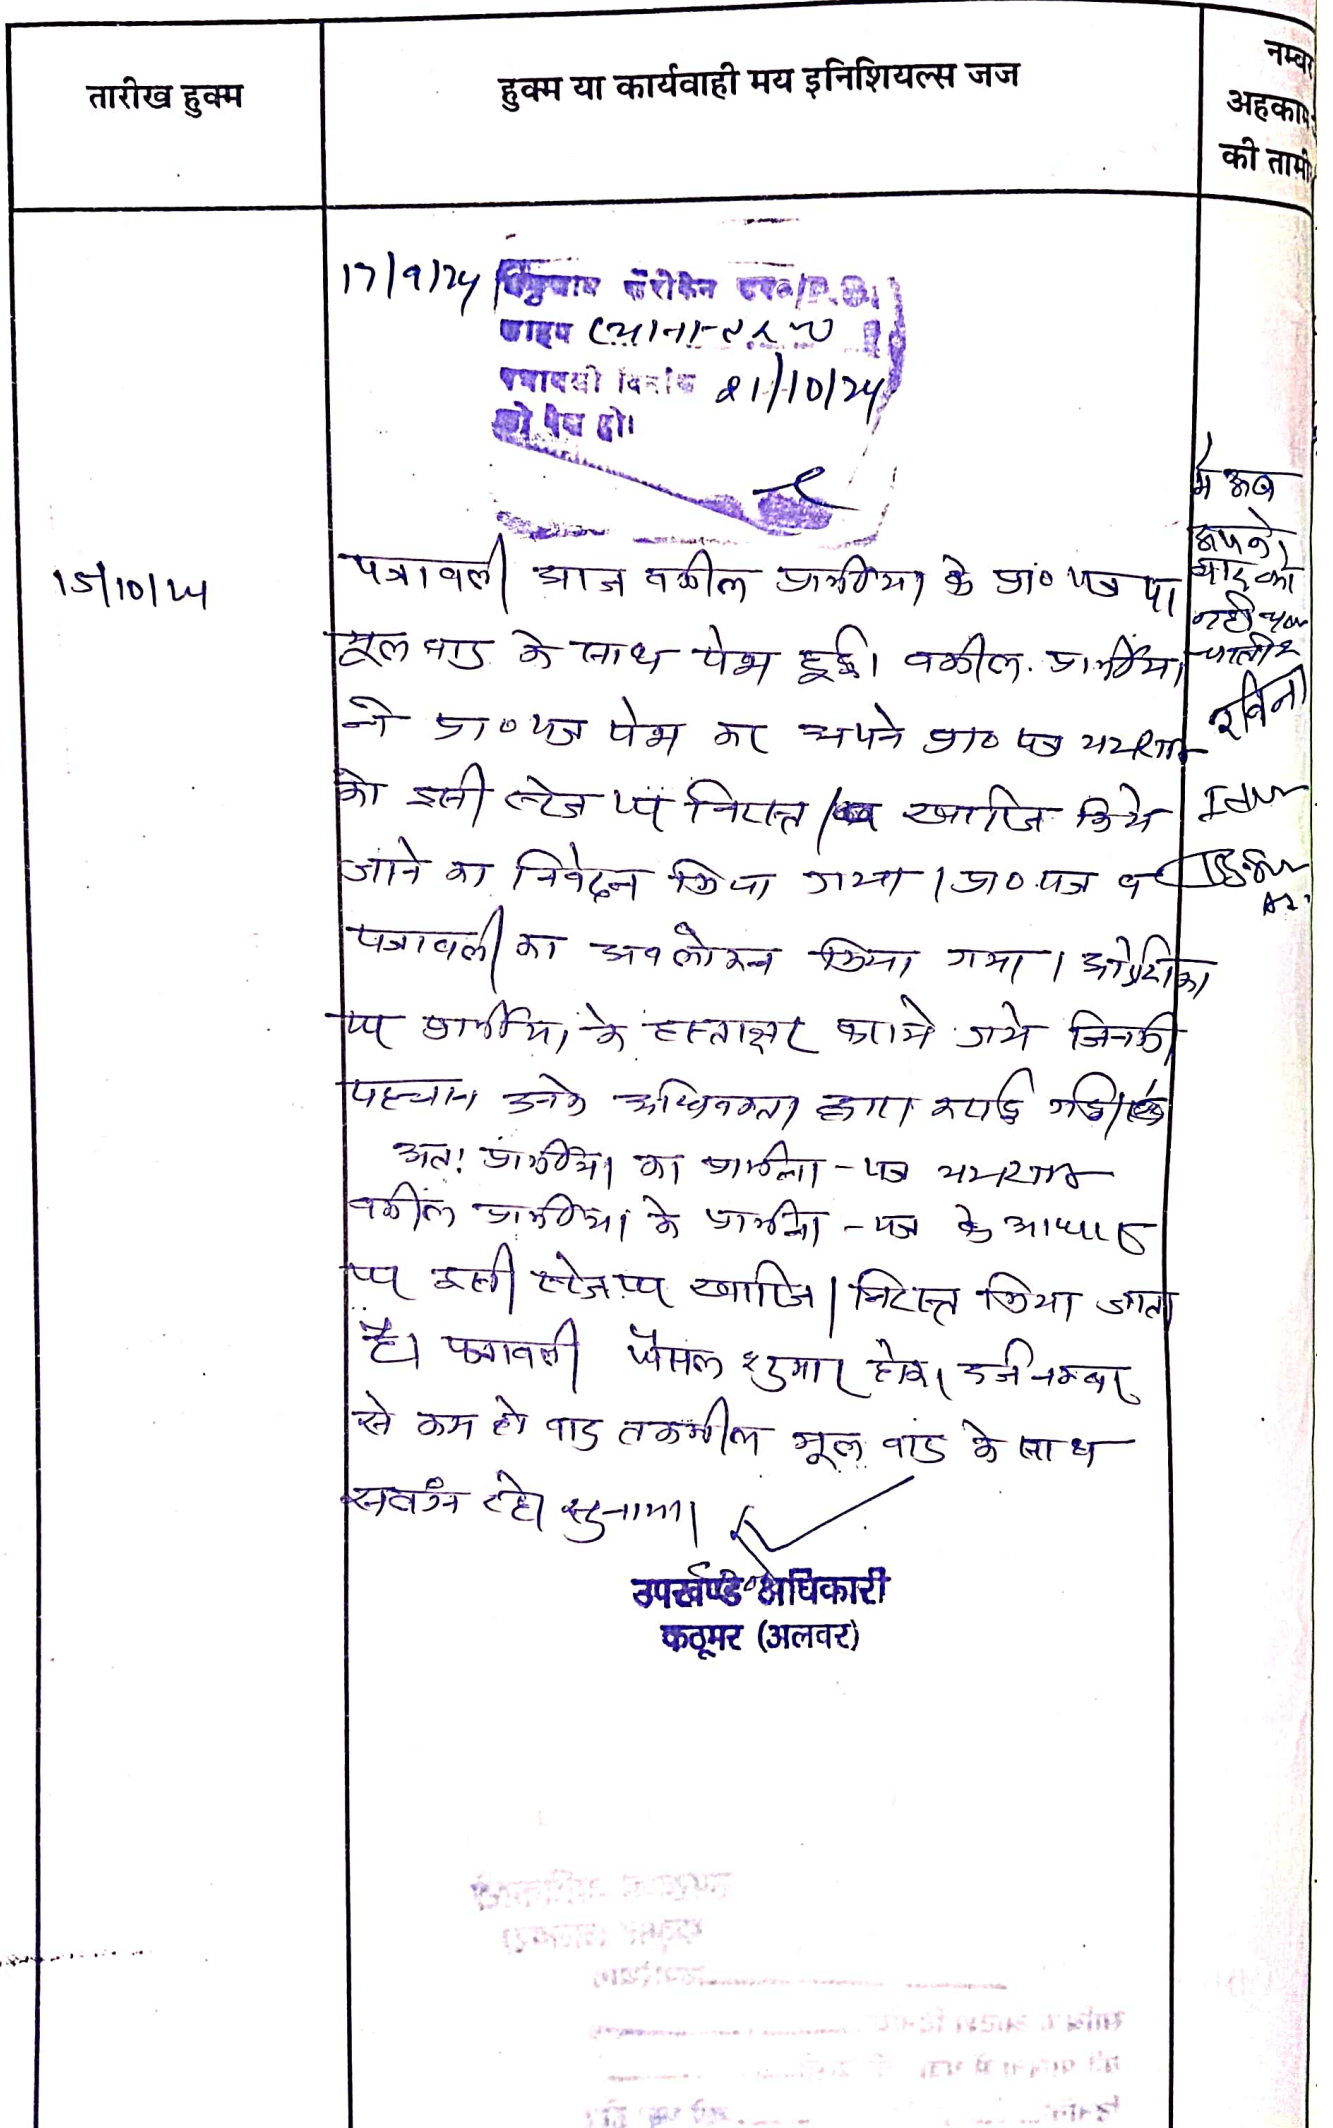 तारीख हुक्म
हुक्म या कार्यवाही मय इनिशियल्स जज
नम्बर
अहकाम
की तामी
17/9/24
21/10/24
को पेश हो।
15/10/24
पत्रावली आज वकील प्रार्थीया के प्रा० पत्र पर
मूल वाद के साथ पेश हुई। वकील प्रार्थीया
ने प्रा० पत्र पेश कर अपने प्रा० पत्र
को इसी स्टेज पर निरस्त / खारिज किये
जाने का निवेदन किया गया। प्रा० पत्र व
पत्रावली का अवलोकन किया गया।
पर प्रार्थीया के हस्ताक्षर कराये गये जिनकी
पहचान उनके अधिवक्ता द्वारा कराई गई।
अतः प्रार्थीया का प्रार्थना-पत्र
वकील प्रार्थीया के प्रार्थना-पत्र के आधार
पर इसी स्टेज पर खारिज / निरस्त किया जाता
है। पत्रावली फैसल शुमार होकर दर्ज नम्बर
से कम हो वाद तकमील मूल वाद के साथ
संलग्न रहे। सुनाया।
मैं अब
अपने
वाद को
नही
चलाती
उपखण्ड अधिकारी
कठूमर (अलवर)